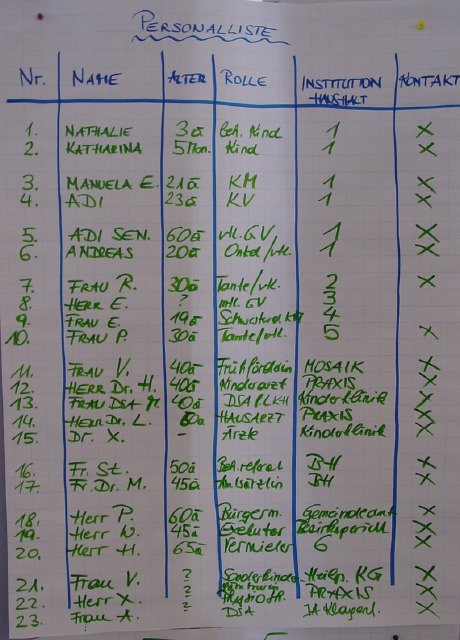 PERSONALLISTE
Nr. NAME ALTER ROLLE INSTITUTION HAUSHALT KONTAKT
1. NATHALIE 3a beh. Kind 1 X
2. KATHARINA 5Mon. Kind 1 X
3. MANUELA E. 21a KM 1 X
4. ADI 23a KV 1 X
5. ADI SEN. 60a vtl. GV 1 X
6. ANDREAS 20a Onkel/vtl. 1 X
7. FRAU R. 30a Tante/vtl. 2 X
8. HERR E. ? mtl. GV 3
9. FRAU E. 19a Schwester d. KM 4
10. FRAU P. 30a Tante/vtl. 5 X
11. FRAU V. 40a Frühförderin MOSAIK X
12. HERR Dr. H. 40a Kinderarzt PRAXIS X
13. FRAU DSA 40a DSA LKH Kinderklinik X
14. HERR Dr. L. 60a HAUSARZT PRAXIS X
15. Dr. X. - Ärzte Kinderklinik X
16. Fr. St. 50a Beh.referat BH X
17. Fr. Dr. M. 45a Amtsärztin BH X
18. Herr P. 60a Bürgerm. Gemeindeamt X
19. Herr W. 45a Exekutor Bezirksgericht X
20. Herr H. 65a Vermieter 6 X
21. Frau V. ? Heilp. KG X
22. Herr X. ? PRAXIS X
23. Frau A. ? DSA X